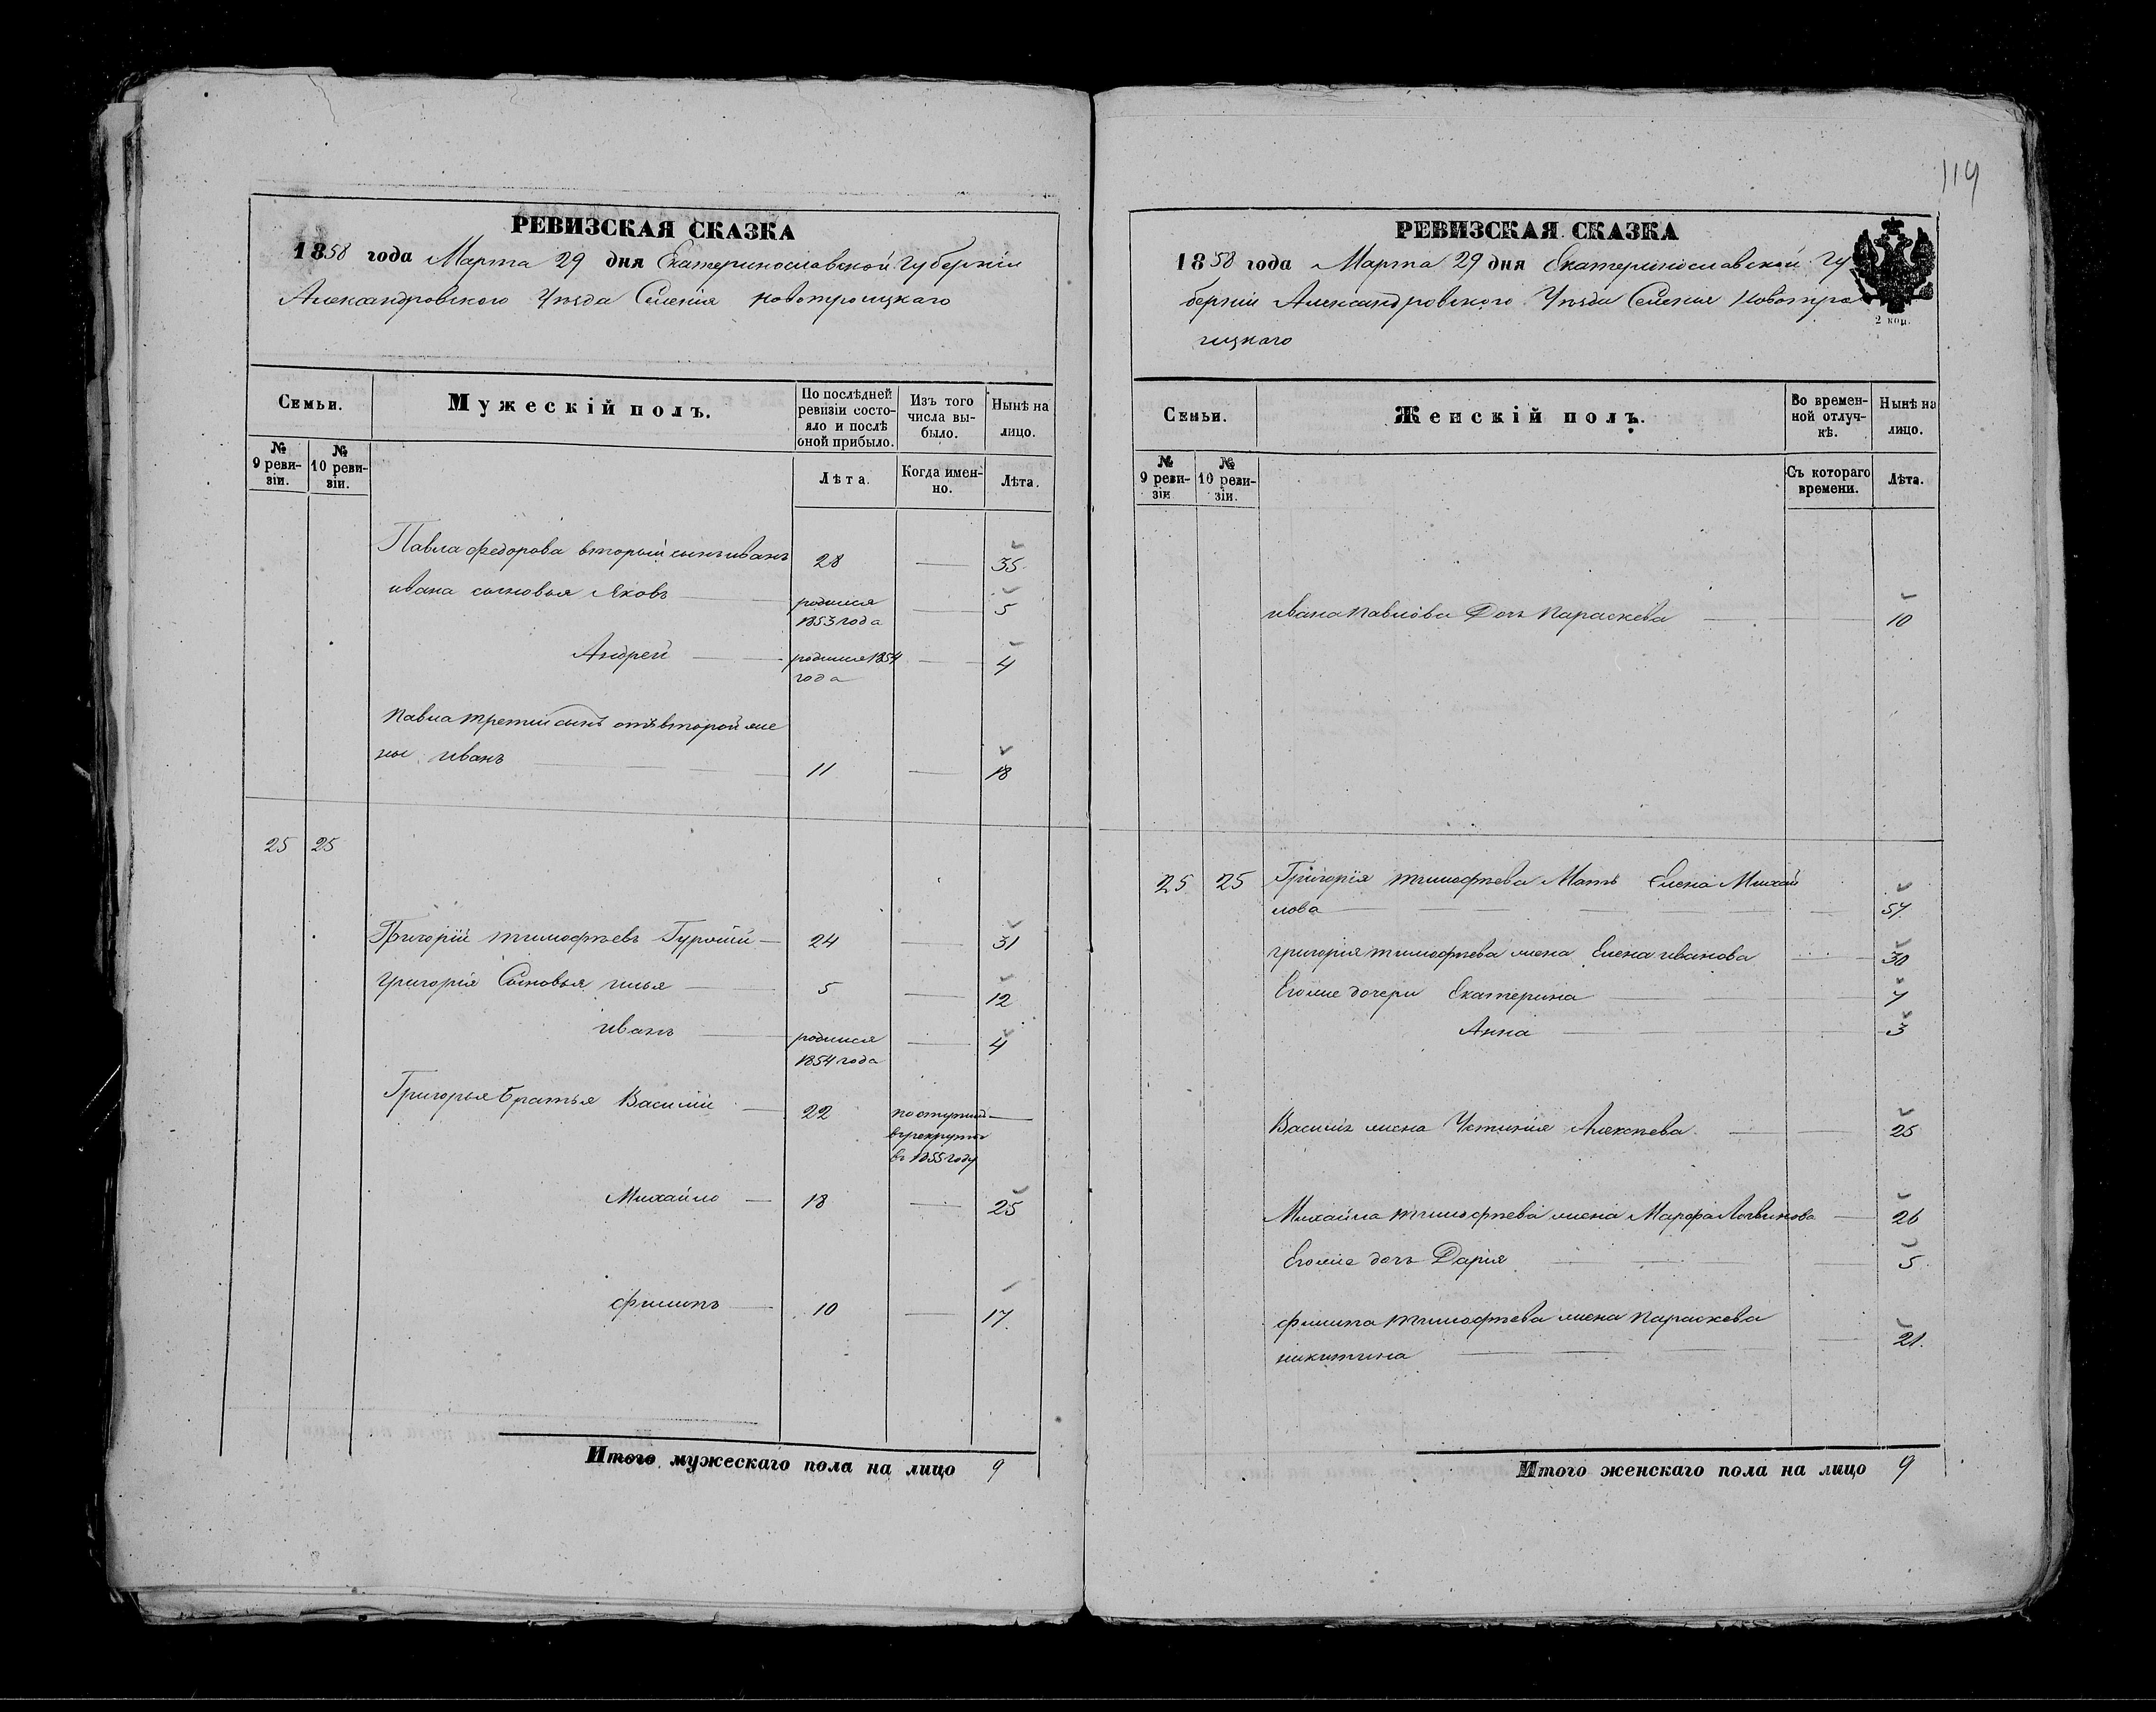 119
РЕВИЗСКАЯ СКАЗКА
1858 года Марта 29 дня Екатеринославской Губерніи
Александровского Уѣзда Селенія Новотроицкаго
Семьи.
Мужескій полъ.
По послѣдней ревизіи состояло и послѣ оной прибыло.
Изъ того числа выбыло.
Нынѣ на лицо.
№ 9 ревизіи.
№ 10 ревизіи.
Лѣта.
Когда именно.
Лѣта.
Павла Федорова вторый сынъ иванъ 28 — 35
ивана сыновья Яковъ — родился 1853 года — 5
Андрей — родился 1854 года — 4
Павла третій сынъ отъ второй же
ны иванъ — 11 — 18
25 25
Григорій тимофѣевъ — 24 — 31
григорія Сыновья илья — 5 — 12
иванъ — родился 1854 года — 4
Григорья братья Василій — 22
в рекруты
въ 1855 году
Михайло — 18 — 25
филипъ — 10 — 17
Итого мужескаго пола на лицо 9
РЕВИЗСКАЯ СКАЗКА
1858 года Марта 29 дня Екатеринославской Гу
берніи Александровского Уѣзда Селенія Новотро
ицкаго
2 коп.
Семьи.
Женскій полъ.
Во временной отлучкѣ.
Нынѣ на лицо.
№ 9 ревизіи
№ 10 ревизіи.
Съ котораго времени.
Лѣта.
ивана павлова Дочь параскева — 10
25 25 Григорія тимофѣева Мать Елена Михай
лова —
григорія тимофѣева жена Елена иванова — 30
Егоже дочери Екатерина —
Анна — 3
Василія жена Устинія Алексѣева — 25
Михайла тимофѣева жена Марфа Логвинова — 26
Егоже дочь Дарія — 5
филипа тимофѣева жена параскева
никитина — 21.
Итого женскаго пола на лицо 9